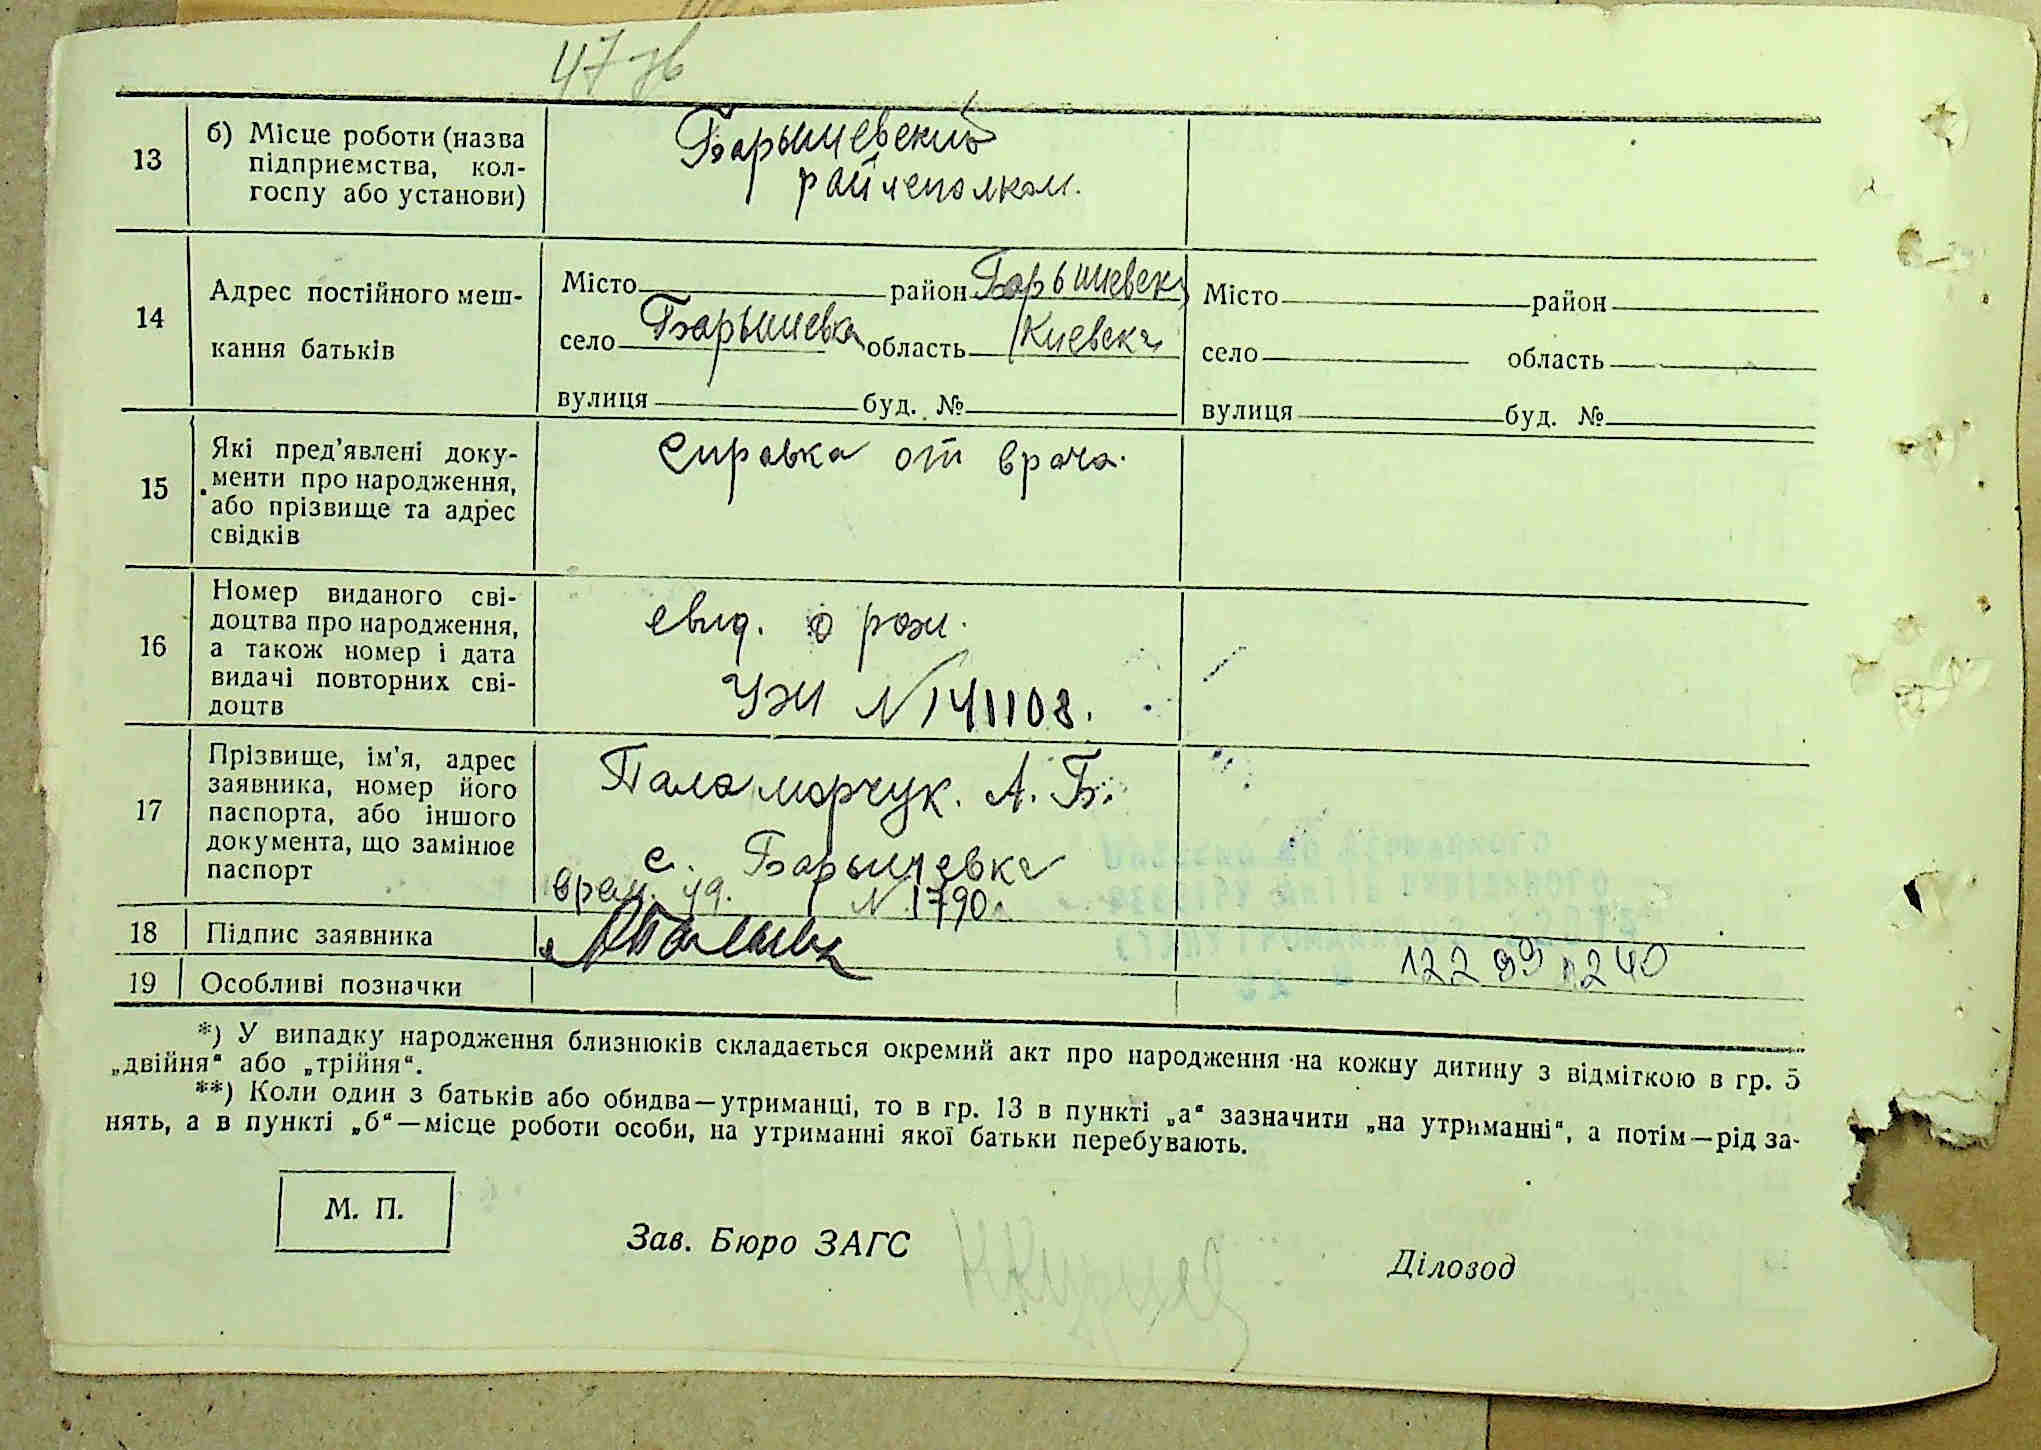 47 зв
13
б) Місце роботи (назва
підприємства, кол-
госпу або установи)
Барышевский
райисполком.
14
Адрес постійного меш-
кання батьків
Місто район Барышевск
село Барышевка область Киевска
вулиця буд. №
Місто район
село область
вулиця буд. №
15
Які пред'явлені доку-
менти про народження,
або прізвище та адрес
свідків
справка от врача.
16
Номер виданого сві-
доцтва про народження,
а також номер і дата
видачі повторних сві-
доцтв
свид. о рож.
УЖ № 141108.
17
Прізвище, ім'я, адрес
заявника, номер його
паспорта, або іншого
документа, що замінює
паспорт
Паламорчук. А. Б.
с. Барышевка
врем. уд. N 1790.
18
Підпис заявника
19
Особливі позначки
122 99 240
*) У випадку народження близнюків складається окремий акт про народження на кожну дитину з відміткою в гр. 5
„двійня“ або „трійня“.
**) Коли один з батьків або обидва—утриманці, то в гр. 13 в пункті „а“ зазначити „на утриманні“, а потім—рід за-
нять, а в пункті „б“—місце роботи особи, на утриманні якої батьки перебувають.
М. П.
Зав. Бюро ЗАГС
Діловод